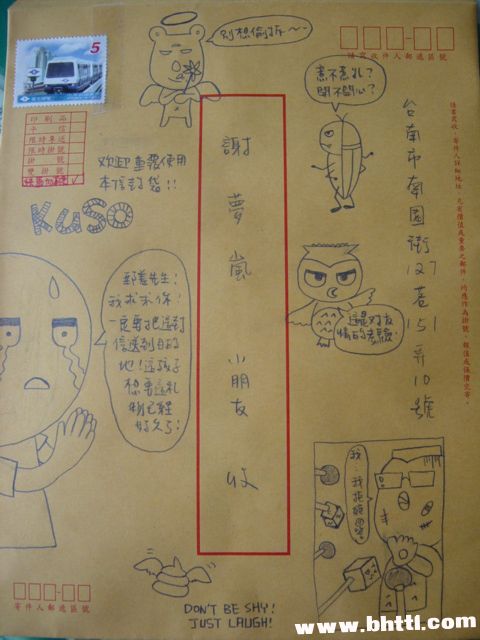 5
別想偷拆～
請寫收件人郵遞區號
意不意外?
開不開心?
印刷品
平信
限時專送
限時掛號
掛號
雙掛號
歡迎重覆使用
本信封袋!!
KUSO
謝夢嵐 小朋友 收
台南市南園街127巷151弄10號
郵差先生!
我求求你!
一定要把這封
信送到目的
地!這孩子
想要這札
物已經
好久了!
這是對友
情的考驗.
我..我拒絕回答.
DON'T BE SHY!
JUST LAUGH!
寄件人郵遞區號
www.bhttl.com